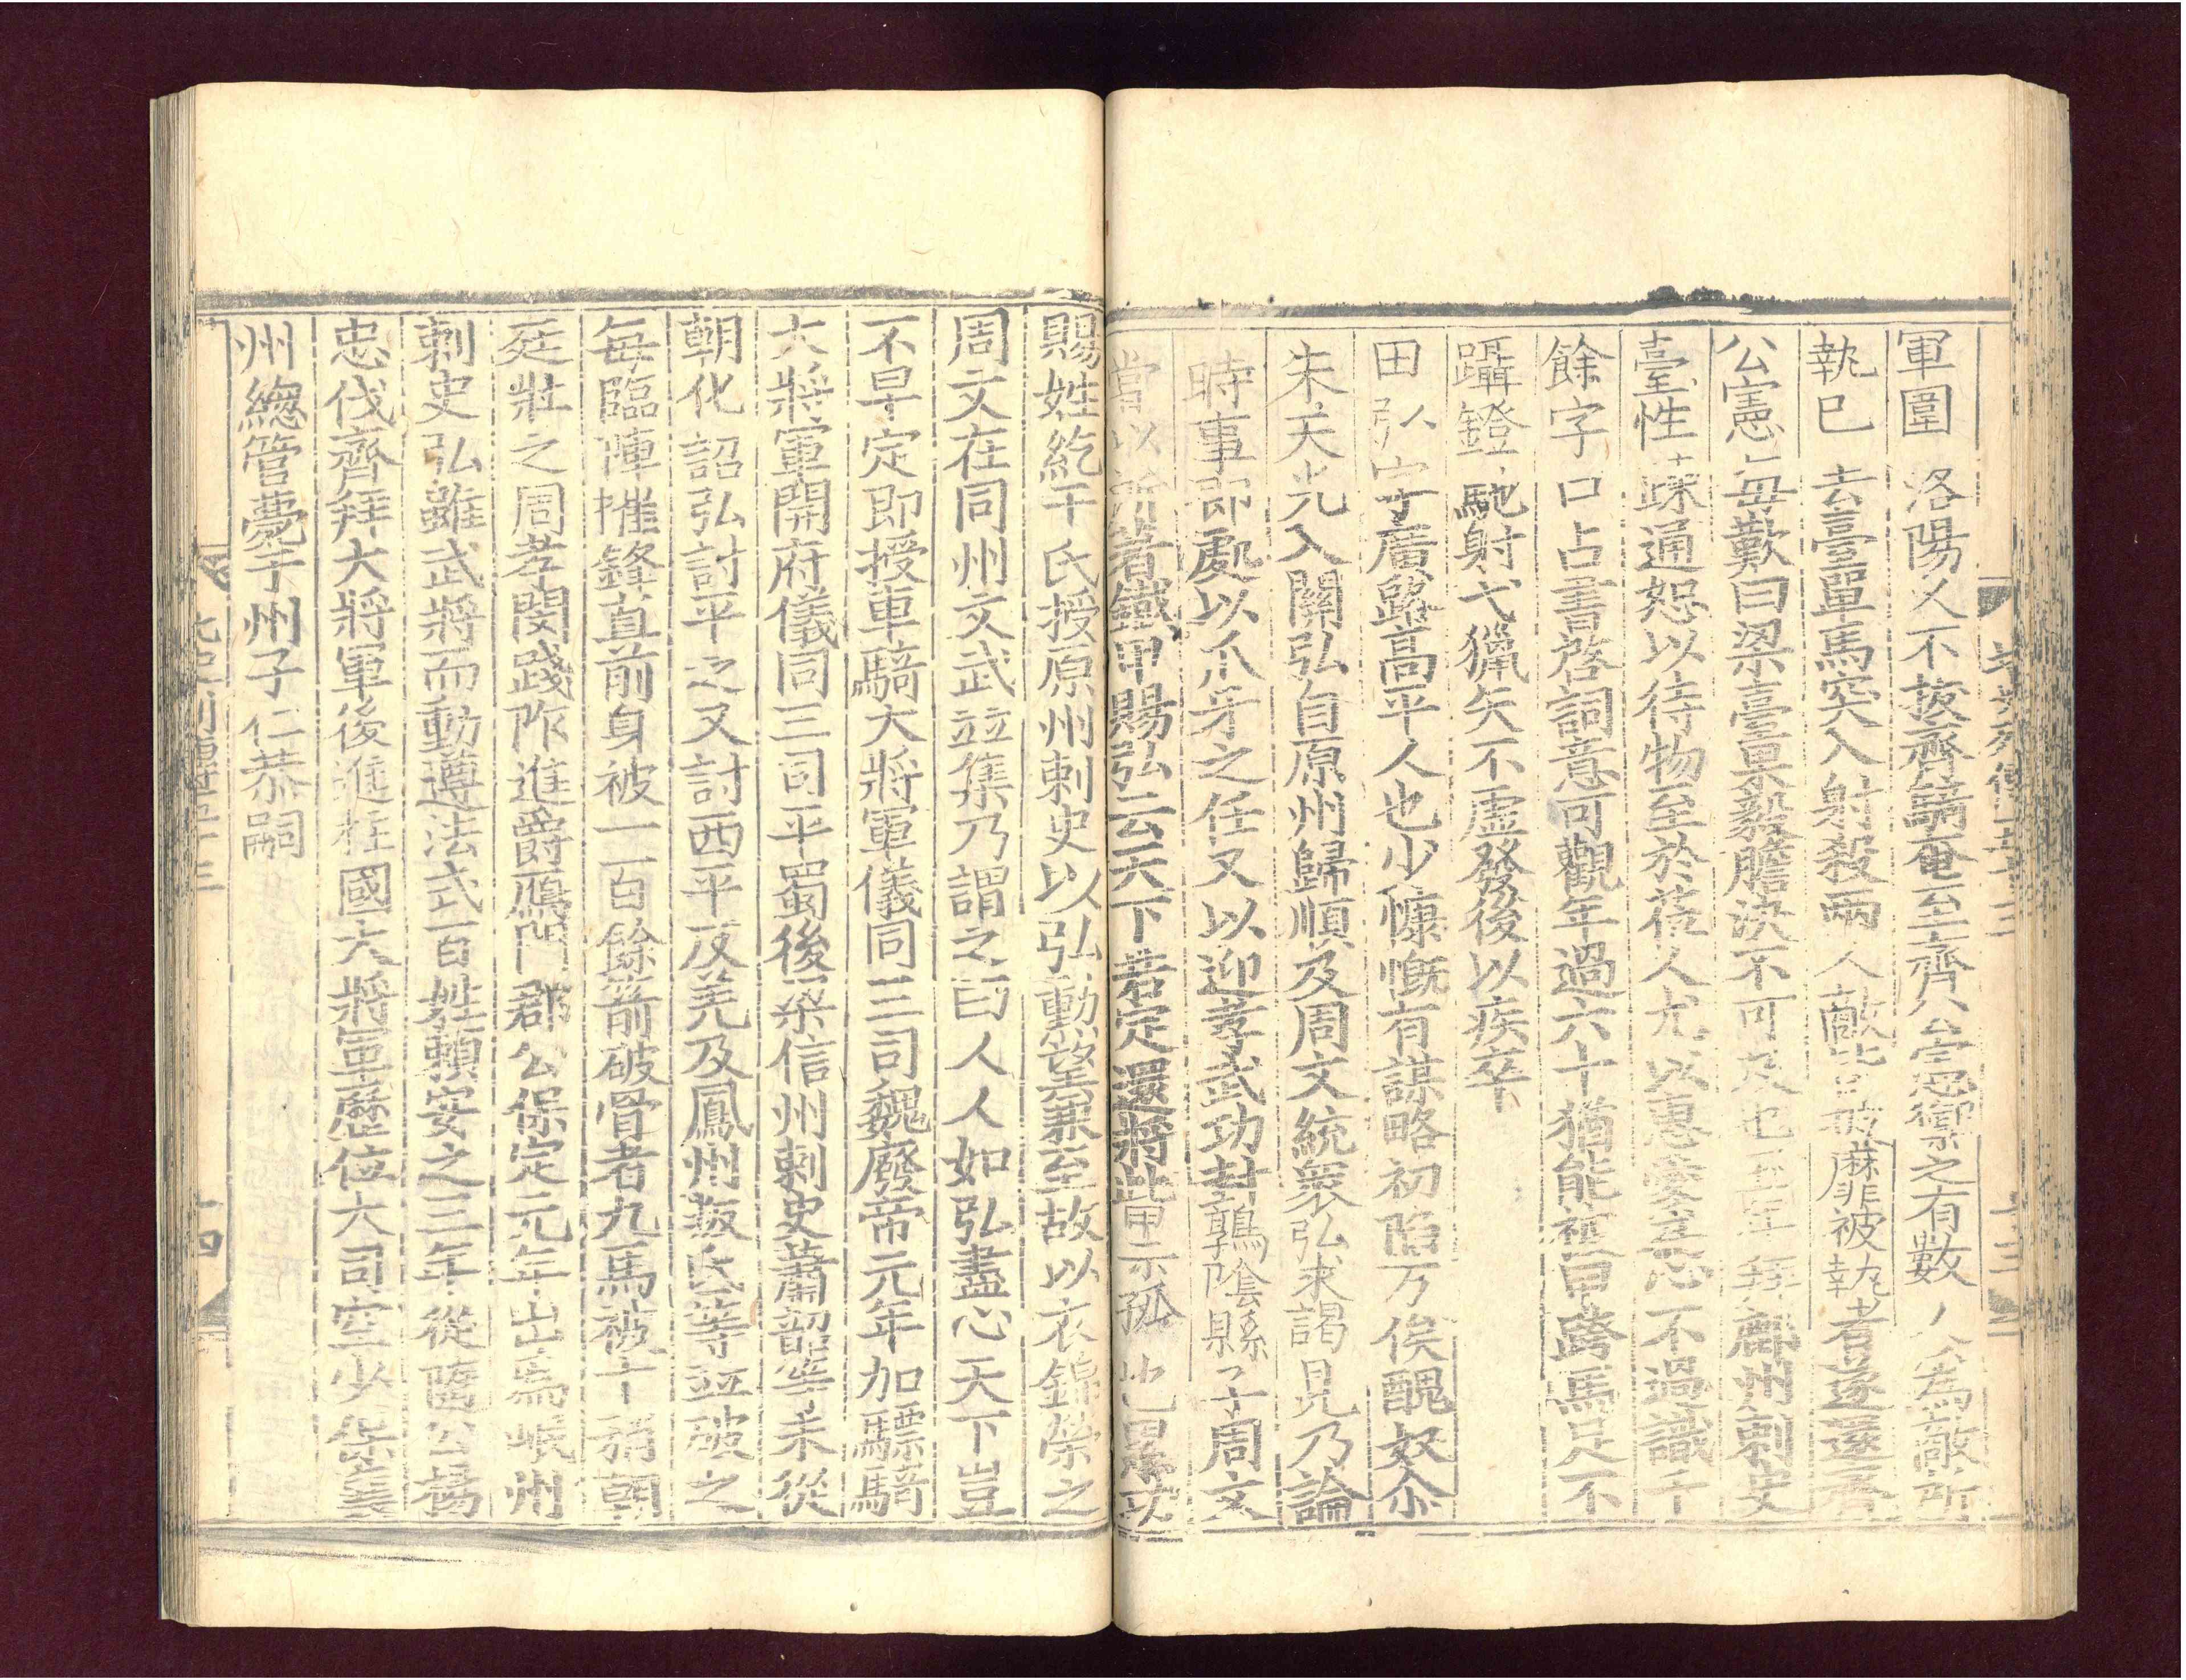 軍圍洛陽久不拔齊騎奄至齊公憲禦之有數人為敵所
執巳去臺單馬突入射殺兩人敵皆披靡被執者遂還齊
公憲每歎曰梁臺果毅膽決不可及也五年拜鄜州刺史
臺性疎通恕以待物至於莅人尤以惠愛為心不過識千
餘字口占書啓詞意可觀年過六十猶能被甲跨馬足不
躡鐙馳射弋獵矢不虛發後以疾卒
田弘字廣路高平人也少慷慨有謀略初陷万俟醜奴尒
朱天光入關弘自原州歸順及周文統衆弘求謁見乃論
時事即處以爪牙之任又以迎孝武功封鶉陰縣子周文
嘗以所著鐵甲賜弘云天下若定還將此甲示孤也累功
賜姓紇干氏授原州刺史以弘勳望兼至故以衣錦榮之
周文在同州文武並集乃謂之曰人人如弘盡心天下豈
不早定即授車騎大將軍儀同三司魏廢帝元年加驃騎
大將軍開府儀同三司平蜀後梁信州刺史蕭韶等未從
朝化詔弘討平之又討西平反羌及鳳州叛氐等並破之
每臨陣摧鋒直前身被一百餘箭破骨者九馬被十矟朝
廷壯之周孝閔踐阼進爵鴈門郡公保定元年出為岷州
刺史弘雖武將而動遵法式百姓賴安之三年從隨公楊
忠伐齊拜大將軍後進柱國大將軍歷位大司空少保襄
州總管薨于州子仁恭嗣
北史列傳五十三
十四